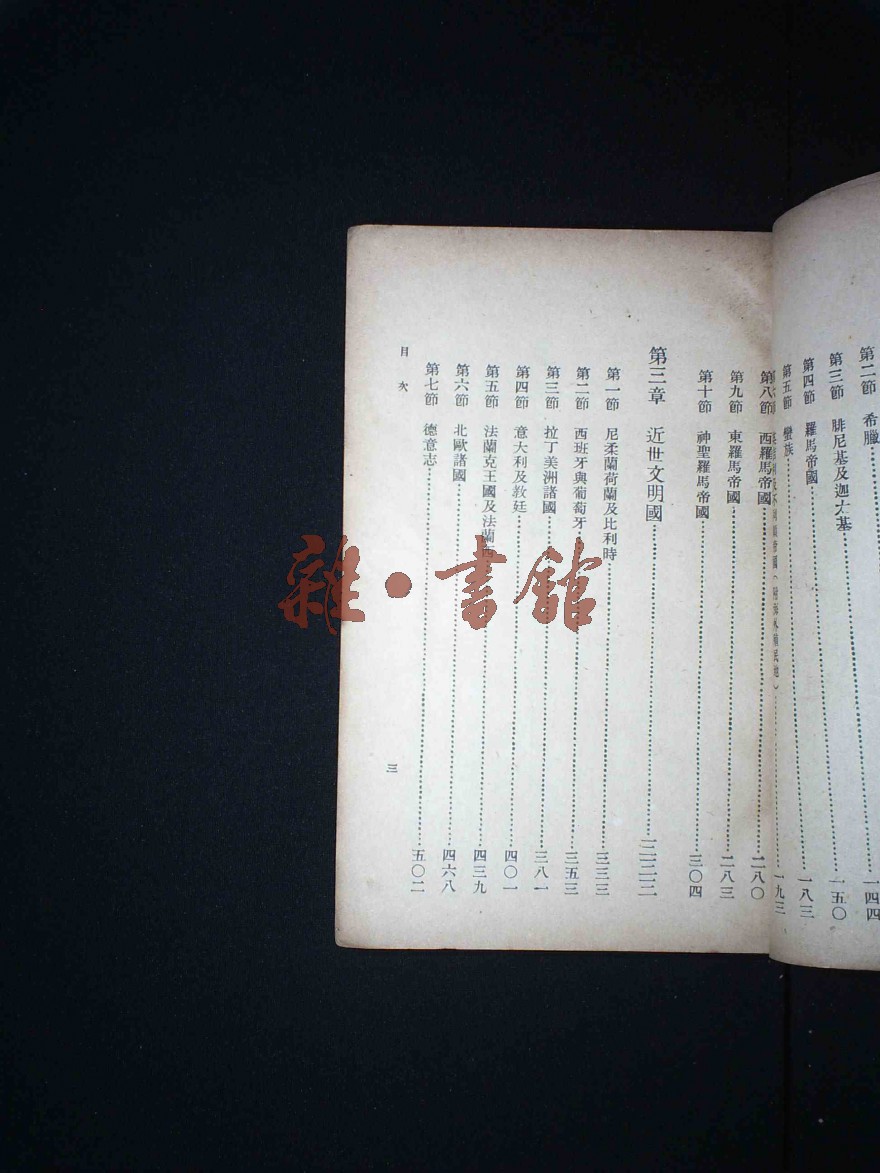 第二節 希臘 一四四
第三節 腓尼基及迦太基 一五〇
第四節 羅馬帝國 一八三
第五節 蠻族 一九三
第八節 西羅馬帝國 二八〇
第九節 東羅馬帝國 二八三
第十節 神聖羅馬帝國 三〇四
第三章 近世文明國
第一節 尼柔蘭荷蘭及比利時 三三三
第二節 西班牙與葡萄牙 三五三
第三節 拉丁美洲諸國 三八一
第四節 意大利及教廷 四〇一
第五節 法蘭克王國及法蘭西 四三九
第六節 北歐諸國 四六八
第七節 德意志 五〇二
目次
三
雜·書館